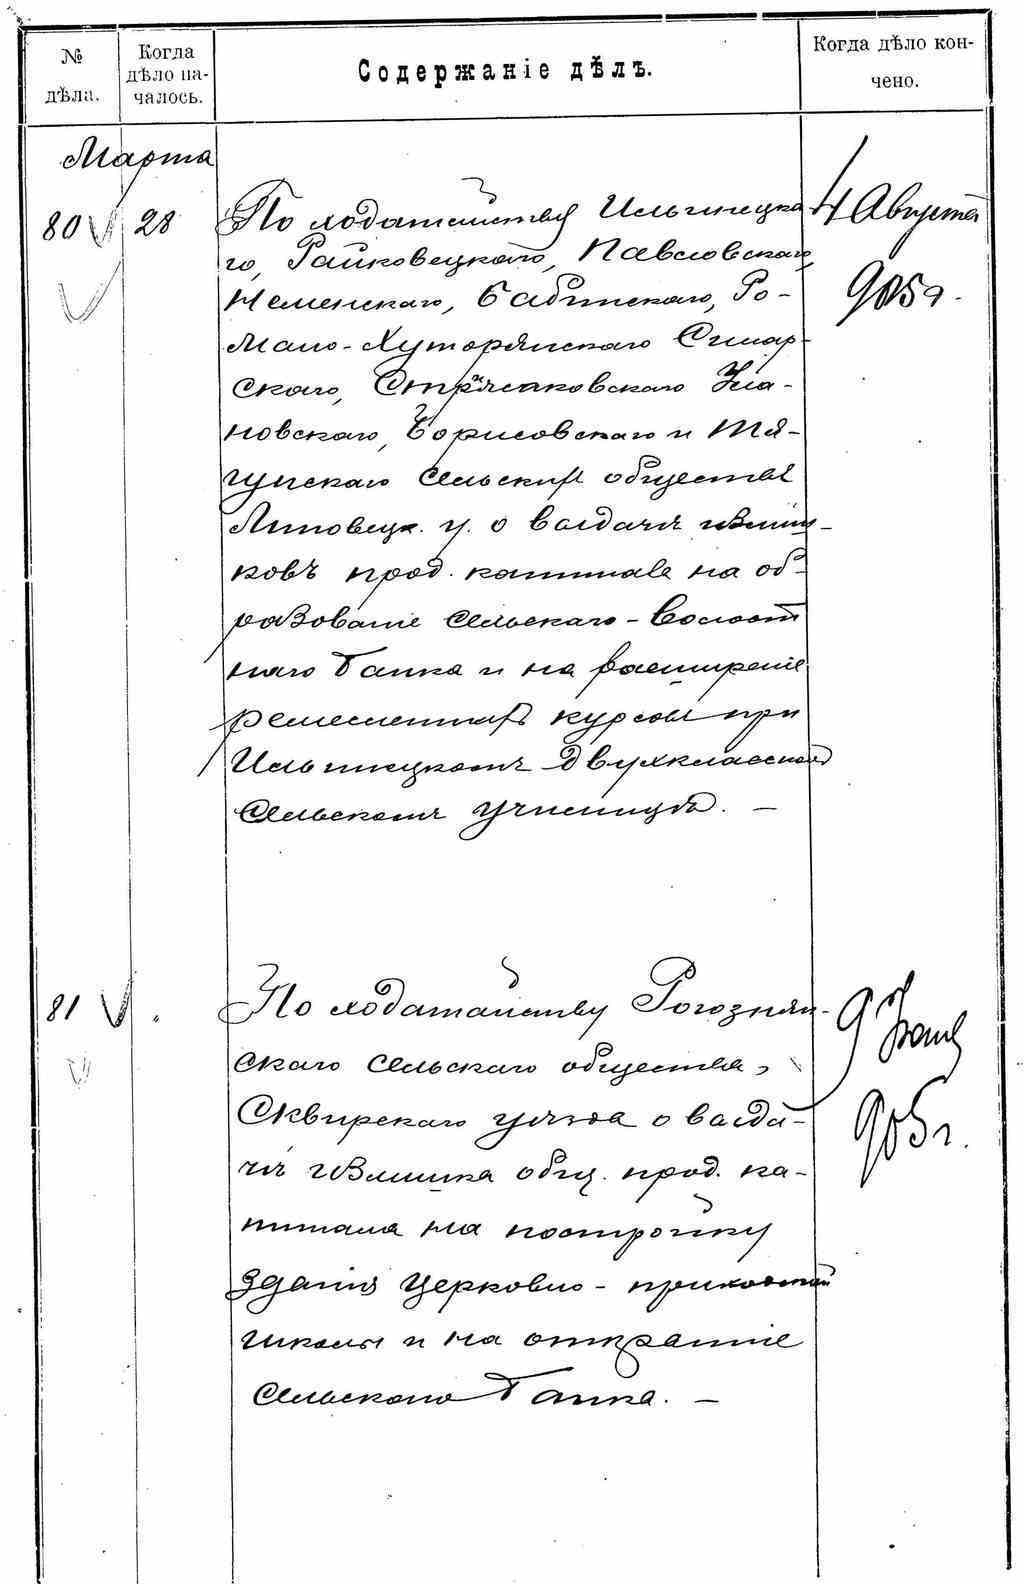 № дѣла.
Когда дѣло началось.
Содержаніе дѣлъ.
Когда дѣло кончено.
Марта
80 28 По ходатайству Ильинецка- 4 Августа
го, Райковецкаго, Павловскаго, 905 г.
Неменскаго, Бабинскаго, Ро-
мано-Хуторянскаго
скаго, Стрижаковскаго Ула-
новскаго, Борисовскаго и Тя-
гунскаго сельских обществ
Липовецк. у. о выдачѣ излиш-
ковъ прод. капитала на об-
разованіе Сельскаго-Волост
наго Банка и на расширеніе
ремесленных курсовъ при
Ильинецкомъ двухклассном
Сельскомъ Училищѣ. —
81 " По ходатайству Рогознян-
скаго Сельскаго общества, 9
Сквирскаго уѣзда о выда- 905 г.
чѣ излишка общ. прод. ка-
питала на постройку
зданія Церковно-приходской
школы и на открытіе
Сельскаго Банка. —